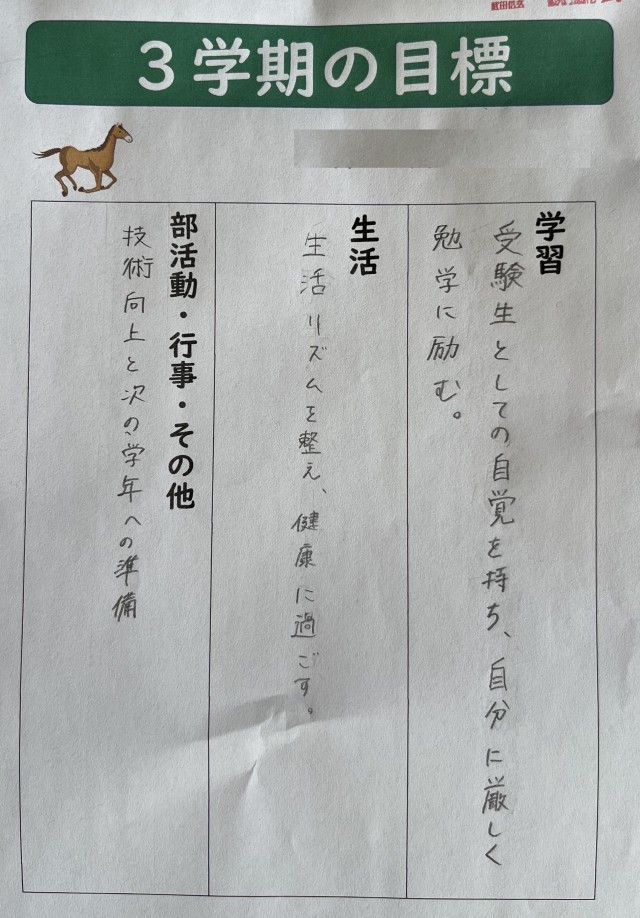 3学期の目標
学習
受験生としての自覚を持ち、自分に厳しく
勉学に励む。
生活
生活リズムを整え、健康に過ごす。
部活動・行事・その他
技術向上と次の学年への準備